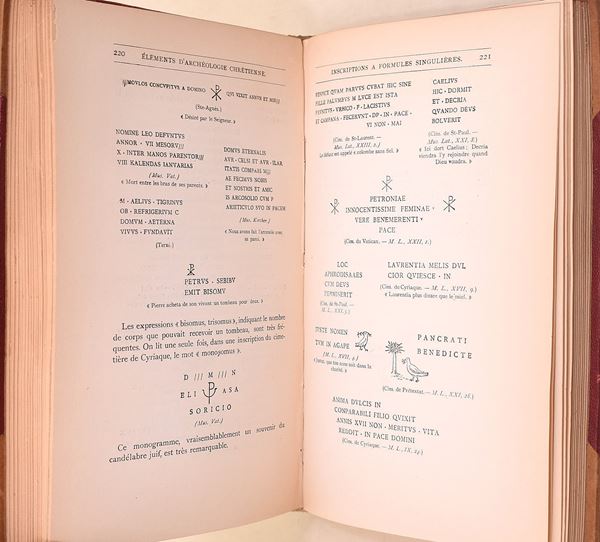 220 ÉLÉMENTS D'ARCHÉOLOGIE CHRÉTIENNE
MOVLOS CONCVPITVS A DOMINO QVI VIXIT ANNVS ET MI
(Ste-Agnès.)
« Désiré par le Seigneur. »
NOMINE LEO DEFVNTVS
ANNOR · VII MESORV
X · INTER MANOS PARENTOR
VIII KALENDAS IANVARIAS
(Mus. Vat.)
« Mort entre les bras de ses parents. »
M · AELIVS · TIGRINVS
OB · REFRIGERIVM C
DOMVM · AETERNA
VIVVS · FVNDAVIT
(Terni.)
DOMVS ETERNALIS
AVR · CELSI ET AVR · ILAR
ITATIS COMPARI M
AE FECIMVS NOBIS
ET NOSTRIS ET AMIC
IS ARCOSOLIO CVM P
ARIETICVLO SVO IN PACEM
(Mus. Kircher.)
« Nous avons fait l'arcosole avec
sa paroi. »
PETRVS · SEBIBV
EMIT BISOMV
« Pierre acheta de son vivant un tombeau pour deux. »
Les expressions « bisomus, trisomus », indiquant le nombre
de corps que pouvait recevoir un tombeau, sont très fré-
quentes. On lit une seule fois, dans une inscription du cime-
tière de Cyriaque, le mot « monosomus ».
D /// M /// N
ELI ASA
SORICIO
(Mus. Vat.)
Ce monogramme, vraisemblablement un souvenir du
candélabre juif, est très remarquable.
INSCRIPTIONS A FORMULES SINGULIÈRES. 221
QVAM PARVVS CVBAT HIC SINE
FELLE PALVMBVS M LVCE EST ISTA
VRSICO · F · LACISTIVS
ET CAMPANA · FECERVNT · DP · IN · PACE ·
VI NON · MAI
(Cim. de St-Laurent. —
Mus. Lat., XXIII, 2.)
Le défunt est appelé « colombe sans fiel. »
CAELIVS
HIC · DORMIT
ET · DECRIA
QVANDO DEVS
BOLVERIT
(Cim. de St-Paul. —
Mus. Lat., XXI, 8.)
« Ici dort Caelius; Decria
viendra l'y rejoindre quand
Dieu voudra. »
PETRONIAE
INNOCENTISSIME FEMINAE ·
VERE BENEMERENTI ·
PACE
(Cim. du Vatican. — M. L., XXII, 1.)
LOC
APHRODISARES
CVM DEVS
PERMISERIT
(Cim. de St-Paul
— M. L., XXI, 9.)
LAVRENTIA MELIS DVL
CIOR QVIESCE · IN
(Cim. de Cyriaque. — M. L., XVII, 9.)
« Laurentia plus douce que le miel. »
ISTE NOMEN
TVM IN AGAPE
(M. L., XVII, 2.)
que ton nom soit dans la
charité. »
PANCRATI
BENEDICTE
(Cim. de Prétextat. — M. L., XXI, 26.)
ANIMA DVLCIS IN
CONPARABILI FILIO QVIXIT
ANNIS XVII NON · MERITVS · VITA
REDDIT · IN PACE DOMINI
(Cim. de Cyriaque. — M. L., IX, 24.)